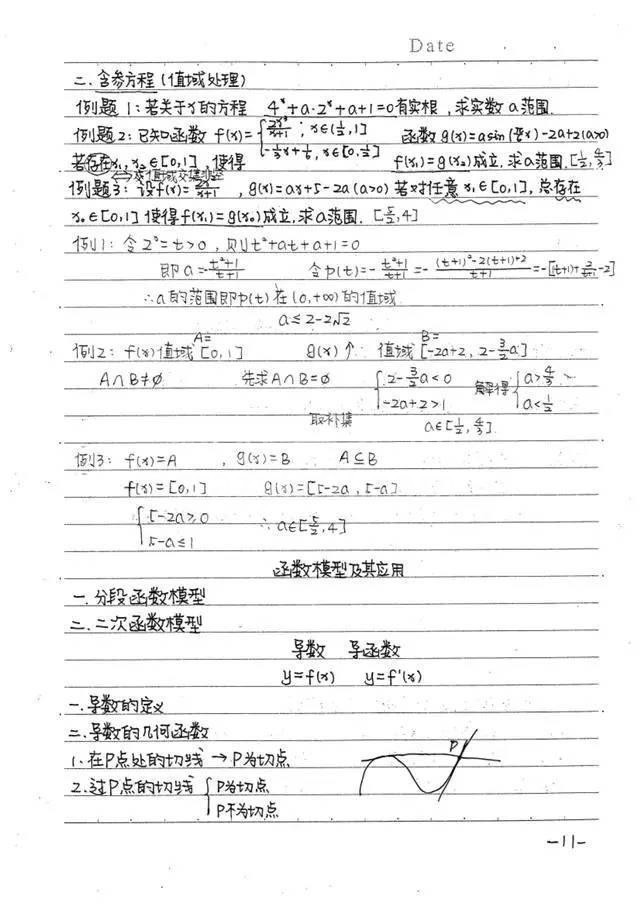 Date
二.含参方程(值域处理)
例题1:若关于x的方程 4ˣ+a·2ˣ+a+1=0有实根,求实数a范围.
例题2:已知函数 f(x)={ 2x³/(x+1), x∈(½,1] ; -⅓x+⅙, x∈[0,½] 函数g(x)=asin( x)-2a+2(a>0)
若存在x₁,x₂∈[0,1],使得 f(x₁)=g(x₂)成立,求a范围.[½,4/3]
⇔求值域交集非空
例题3:设f(x)= /(x+1), g(x)=ax+5-2a(a>0) 若对任意x₁∈[0,1],总存在
x₀∈[0,1]使得f(x₁)=g(x₀)成立,求a范围.[5/2,4]
例1:令2ˣ=t>0,则t²+at+a+1=0
即a=-(t²+1)/(t+1) 令φ(t)=-(t²+1)/(t+1)=-((t+1)²-2(t+1)+2)/(t+1)=-[(t+1)+2/(t+1)-2]
∴a的范围即φ(t)在(0,+∞)的值域
a≤2-2√2
例2:f(x)值域A=[0,1] g(x)↑ 值域B=[-2a+2,2-3/2a]
A∩B≠∅ 先求A∩B=∅ {2-3/2a<0 ; -2a+2>1 解得{a>4/3 ; a<½
取补集 a∈[½,4/3]
例3:f(x)=A ,g(x)=B A⊆B
f(x)=[0,1] g(x)=[5-2a,5-a]
{5-2a≥0 ; 5-a≤1 ∴a∈[5/2,4]
函数模型及其应用
一.分段函数模型
二.二次函数模型
导数 导函数
y=f(x) y=f'(x)
一.导数的定义
二.导数的几何函数
1.在P点处的切线→P为切点
P
2.过P点的切线{P为切点
P不为切点
-11-